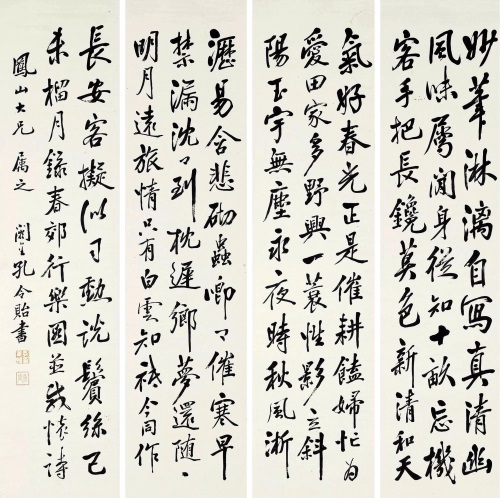 妙筆淋漓自寫真清幽
風味屬閒身從知十畝忘機
客手把長鑱莫色新清和天
氣好春光正是催耕饁婦忙為
愛田家多野興一蓑影立斜
陽玉宇無塵永夜時秋風淅
瀝易含悲砌蟲唧々催寒早
禁漏沈々到枕遲鄉夢還隨
明月遠旅情只有白雲知祗今同作
長安客擬似司勳說鬢絲己
未榴月錄春郊行樂圖並感懷詩
鳳山大兄屬之
闕里孔令貽書